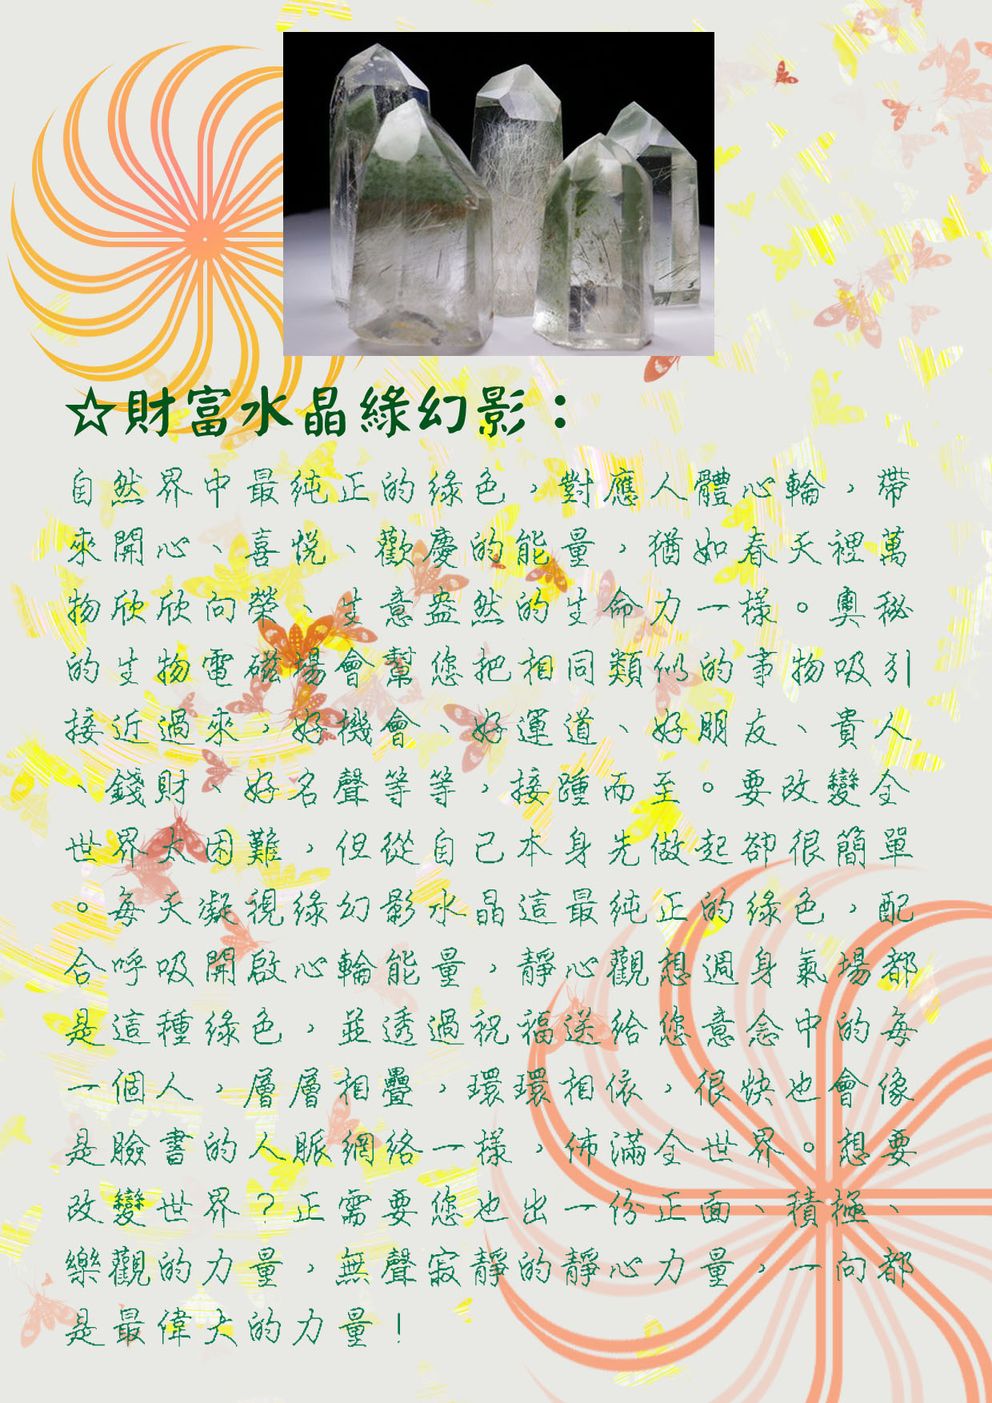 ☆財富水晶綠幻影：
自然界中最純正的綠色，對應人體心輪，帶
來開心、喜悅、歡慶的能量，猶如春天裡萬
物欣欣向榮、生意盎然的生命力一樣。奧秘
的生物電磁場會幫您把相同類似的事物吸引
接近過來，好機會、好運道、好朋友、貴人
、錢財、好名聲等等，接踵而至。要改變全
世界太困難，但從自己本身先做起卻很簡單
。每天凝視綠幻影水晶這最純正的綠色，配
合呼吸開啟心輪能量，靜心觀想週身氣場都
是這種綠色，並透過祝福送給您意念中的每
一個人，層層相疊，環環相依，很快也會像
是臉書的人脈網絡一樣，佈滿全世界。想要
改變世界？正需要您也出一份正面、積極、
樂觀的力量，無聲寂靜的靜心力量，一向都
是最偉大的力量！